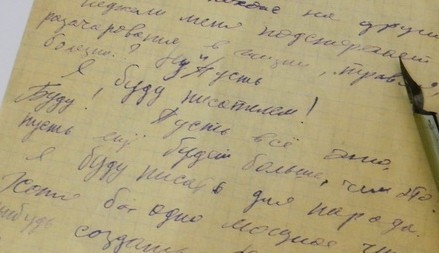 на други
неужели меня подстерегает
разочарование в жизни, трав
болезни? Ну и пусть
Я буду писателем!
Буду! Пусть всё это,
пусть ещё будет больше, чем это.
Я буду писать для народа.
Хотя бы одно мощное
нибудь создать